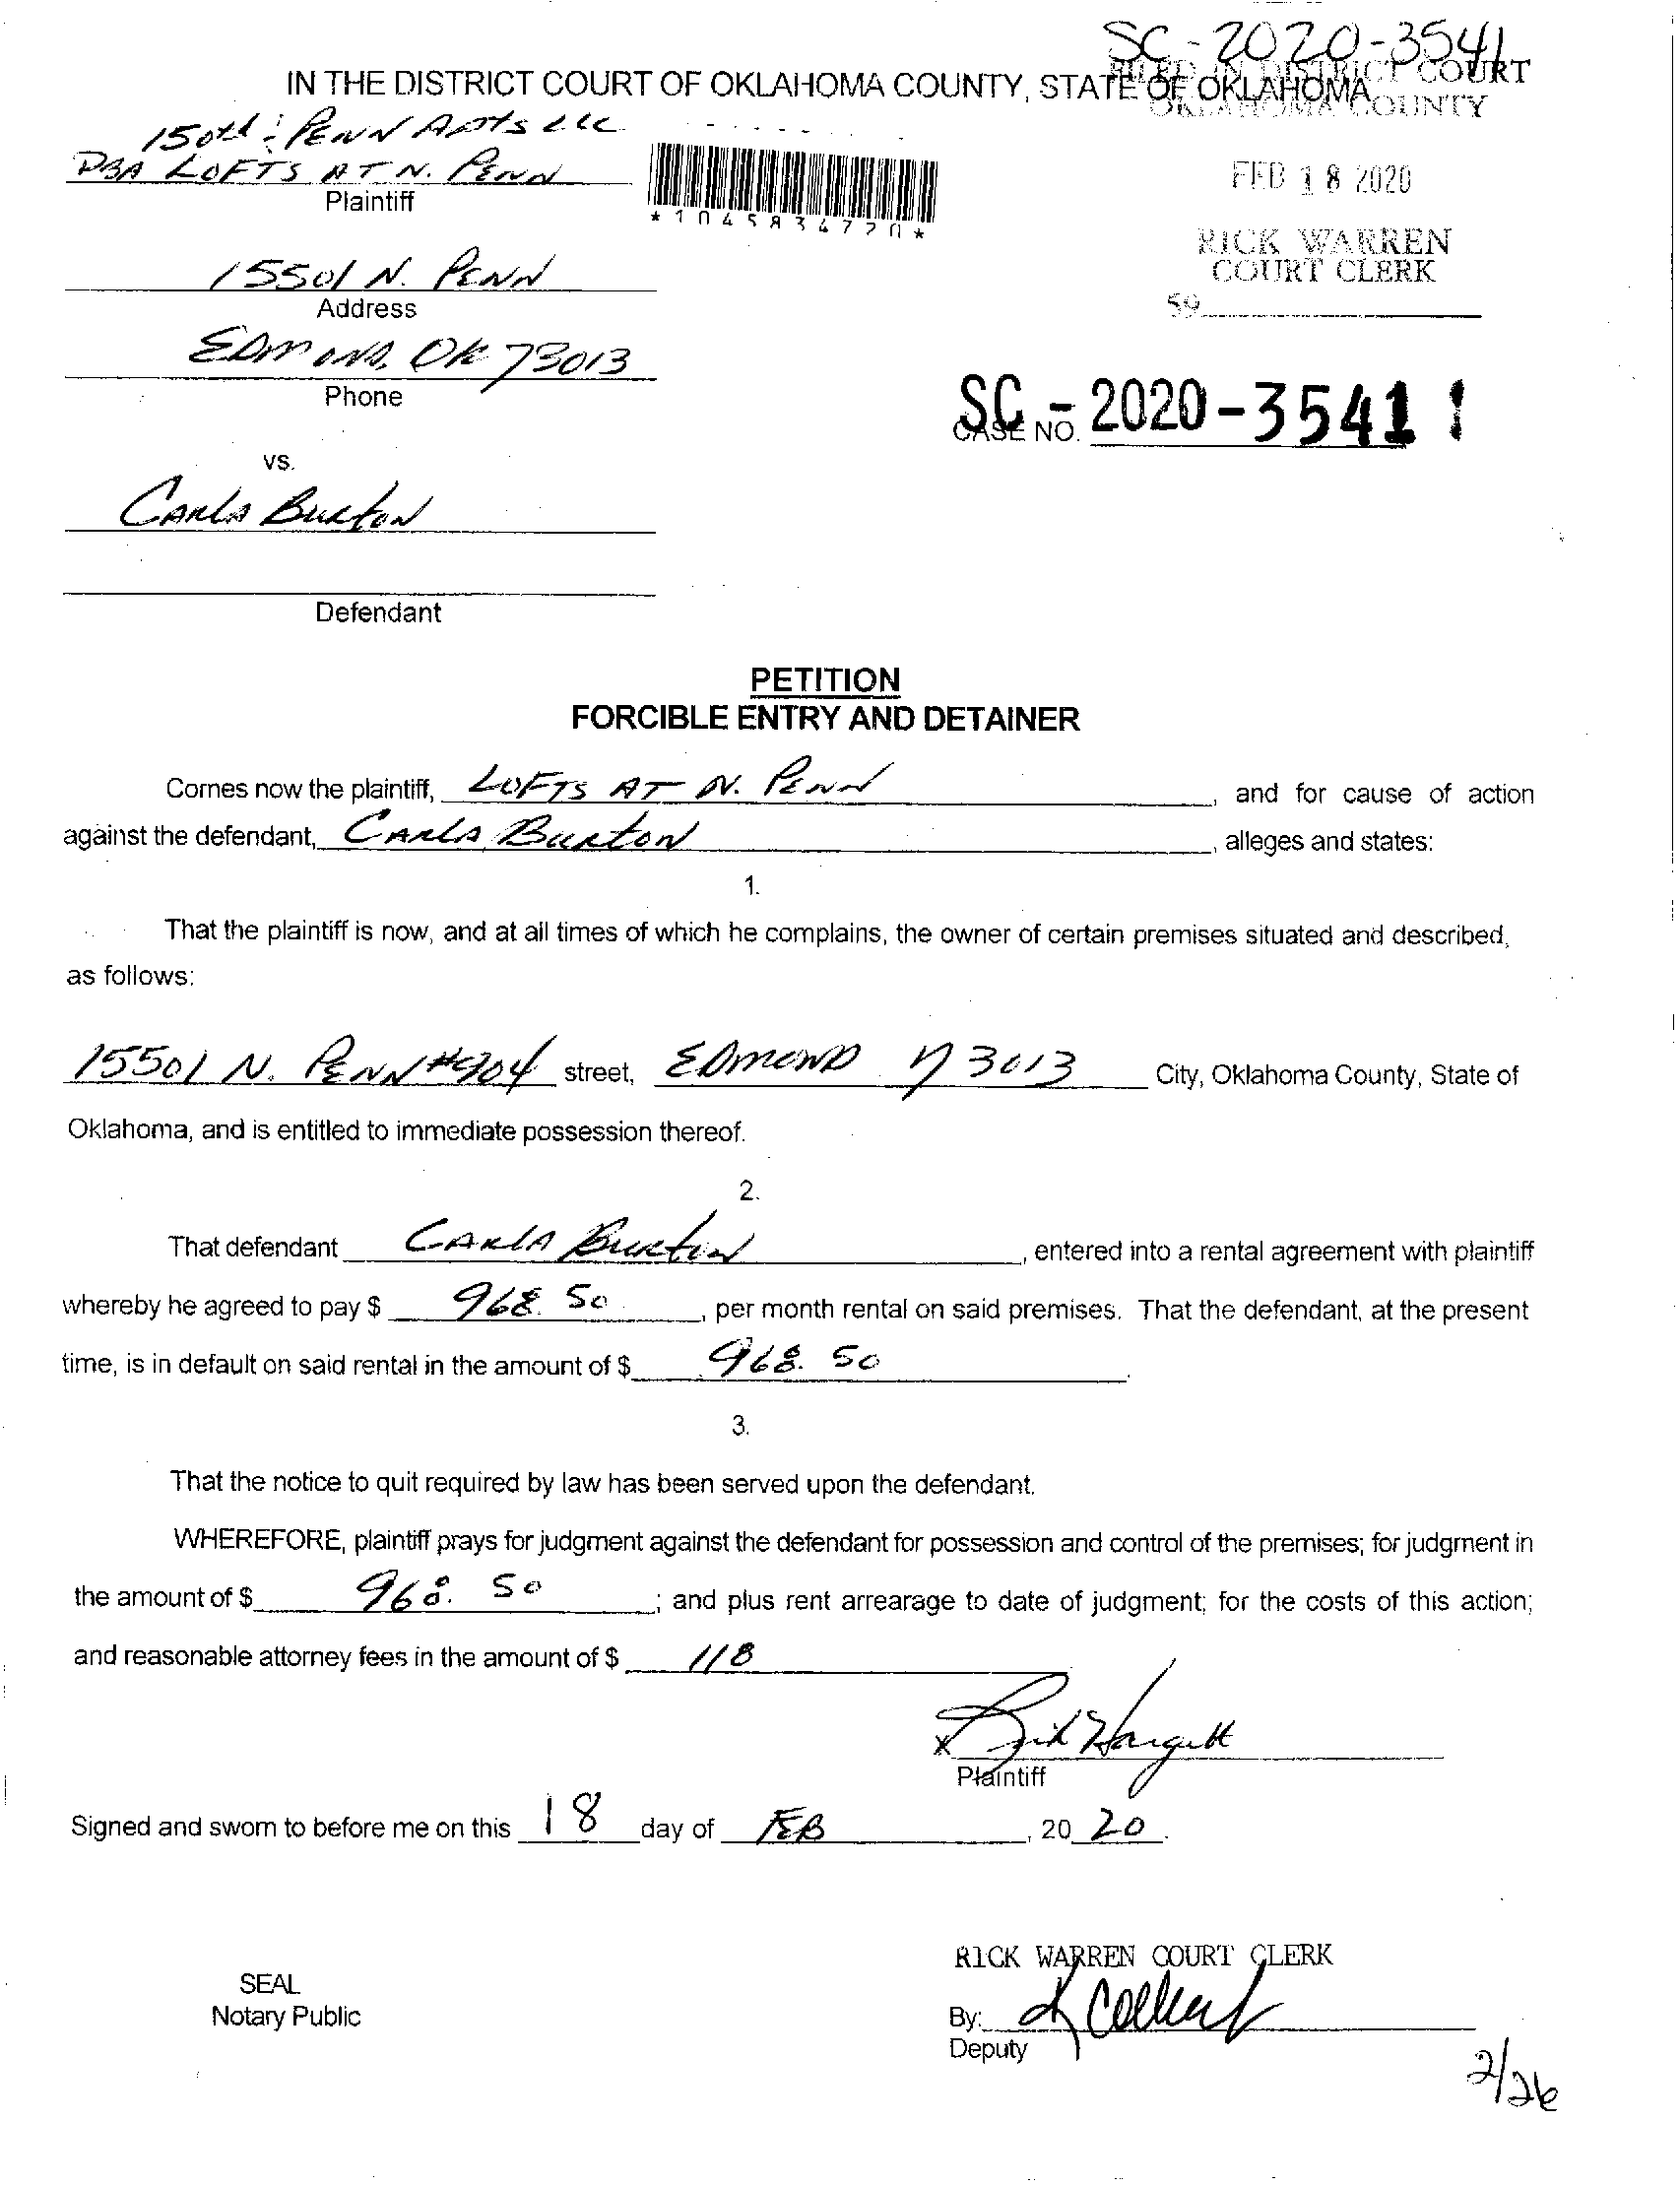 SC-2020-3541
IN THE DISTRICT COURT OF OKLAHOMA COUNTY, STATE OF OKLAHOMA
FILED IN DISTRICT COURT
OKLAHOMA COUNTY
150th & PENN APTS LLC
DBA LOFTS AT N. PENN
Plaintiff
*1045834770*
FEB 18 2020
RICK WARREN
COURT CLERK
59
15501 N. PENN
Address
EDMOND, OK 73013
Phone
SC - 2020-3541
CASE NO.
vs.
CARLA BURTON
Defendant
PETITION
FORCIBLE ENTRY AND DETAINER
Comes now the plaintiff, LOFTS AT N. PENN, and for cause of action
against the defendant, CARLA BURTON, alleges and states:
1.
That the plaintiff is now, and at all times of which he complains, the owner of certain premises situated and described,
as follows:
15501 N. PENN #904 street, EDMOND 73013 City, Oklahoma County, State of
Oklahoma, and is entitled to immediate possession thereof.
2.
That defendant CARLA BURTON, entered into a rental agreement with plaintiff
whereby he agreed to pay $ 968.50, per month rental on said premises. That the defendant, at the present
time, is in default on said rental in the amount of $ 968.50.
3.
That the notice to quit required by law has been served upon the defendant.
WHEREFORE, plaintiff prays for judgment against the defendant for possession and control of the premises; for judgment in
the amount of $ 968.50; and plus rent arrearage to date of judgment; for the costs of this action;
and reasonable attorney fees in the amount of $ 118
x
Plaintiff
Signed and sworn to before me on this 18 day of FEB, 20 20.
RICK WARREN COURT CLERK
SEAL
Notary Public
By:
Deputy
2/26